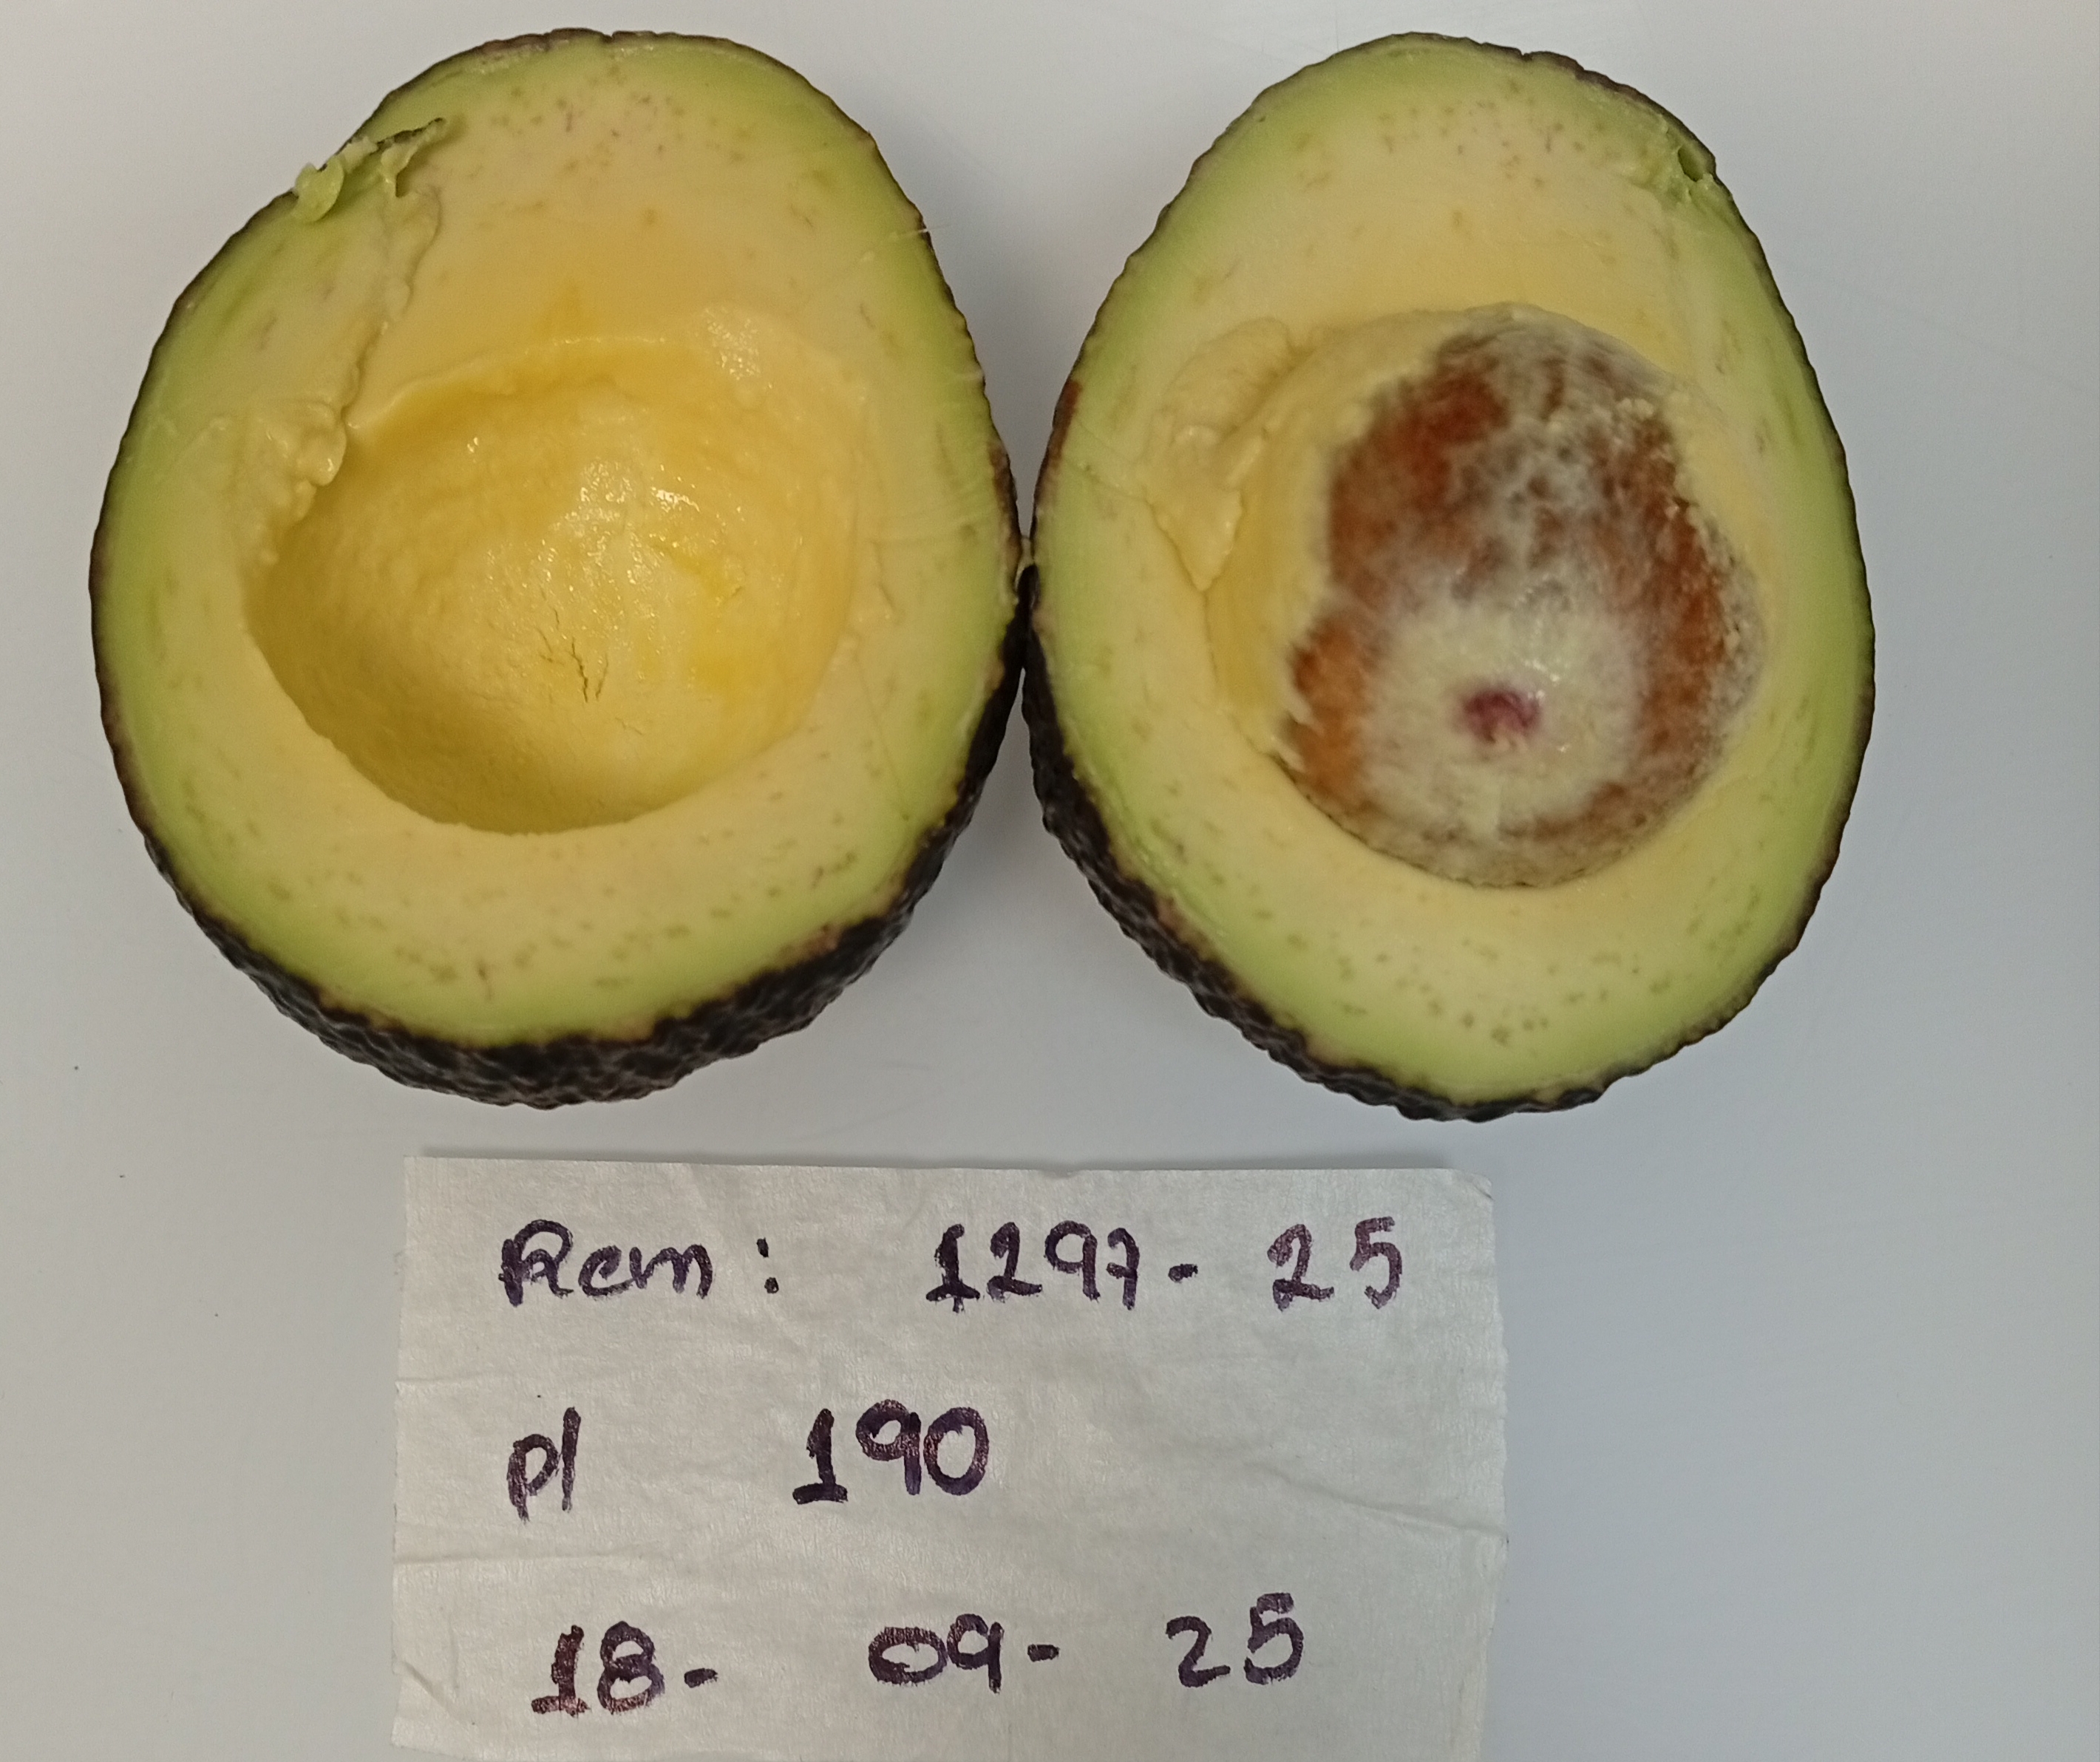 Rem: 1297- 25
pl 190
18- 09- 25